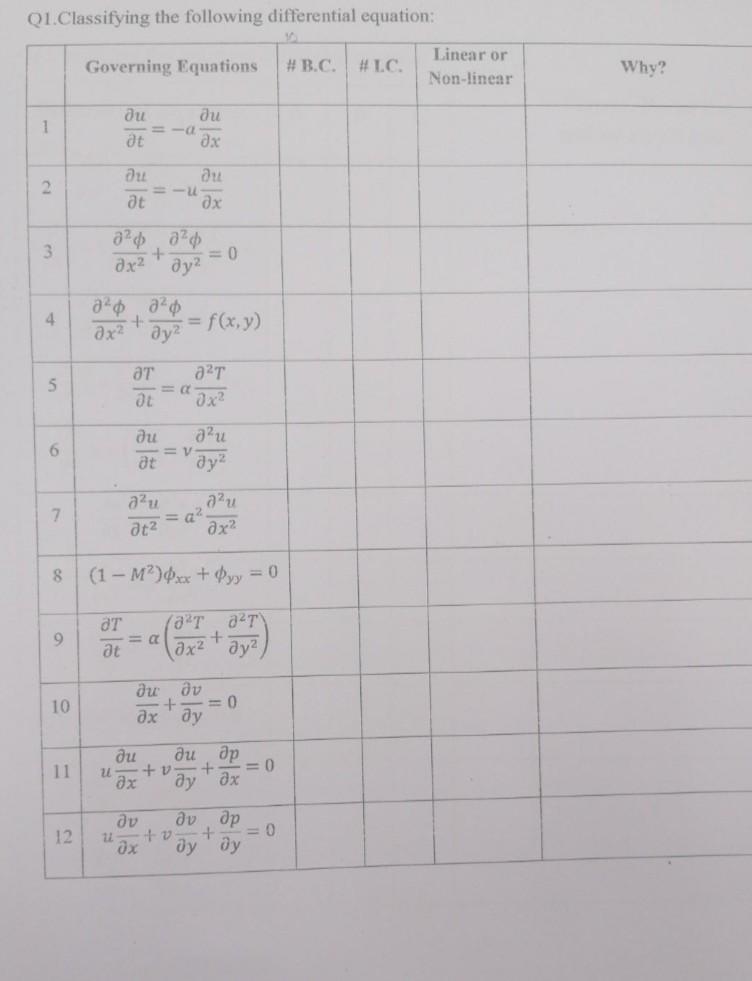 Q1.Classifying the following differential equation:
Governing Equations # B.C. # I.C. Linear or Non-linear Why?
1 ∂u/∂t = −a ∂u/∂x
2 ∂u/∂t = −u ∂u/∂x
3 ∂²ϕ/∂x² + ∂²ϕ/∂y² = 0
4 ∂²ϕ/∂x² + ∂²ϕ/∂y² = f(x, y)
5 ∂T/∂t = α ∂²T/∂x²
6 ∂u/∂t = ν ∂²u/∂y²
7 ∂²u/∂t² = a² ∂²u/∂x²
8 (1 − M²)ϕxx + ϕyy = 0
9 ∂T/∂t = α (∂²T/∂x² + ∂²T/∂y²)
10 ∂u/∂x + ∂v/∂y = 0
11 u ∂u/∂x + v ∂u/∂y + ∂p/∂x = 0
12 u ∂v/∂x + v ∂v/∂y + ∂p/∂y = 0